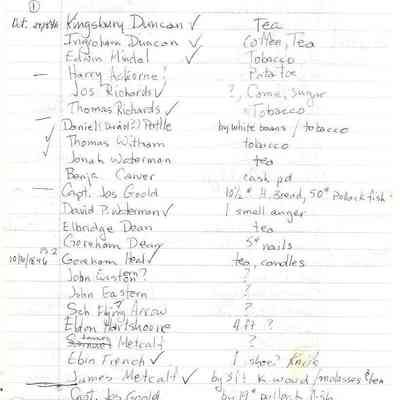 ①
Oct. Kingsbury Duncan ✓ Tea
Ingraham Duncan ✓ Cotten, Tea
Edwin ✓ Tobacco
— Harry Potatoe
Jos Richards ✓ ?, Corne, Sugar
— Thomas Richards ✓ Tobacco
✓ Daniel (David?) by white beans / tobacco
✓ Thomas Witham tobacco
Jonah Waterman tea
Benja Carver cash pd
— Capt. Jos Goold 10½# H. Bread, 50# Pollock fish
David P. Waterman ✓ 1 small anger
Elbridge Dean tea
Gereham Dean 5# nails
P.2
10/10/1846 Gereham Heal ✓ tea, candles
John Easton? ?
John Eastern ?
Sch Flying ? Arrow ?
Eldon Hartshoore 4 ft ?
James Metcalf ?
Ebin French ✓ 1 shoe? Knife
James Metcalf ✓ by 3 ft K wood/molasses & tea
Capt. Jos Goold by 19# pollock fish